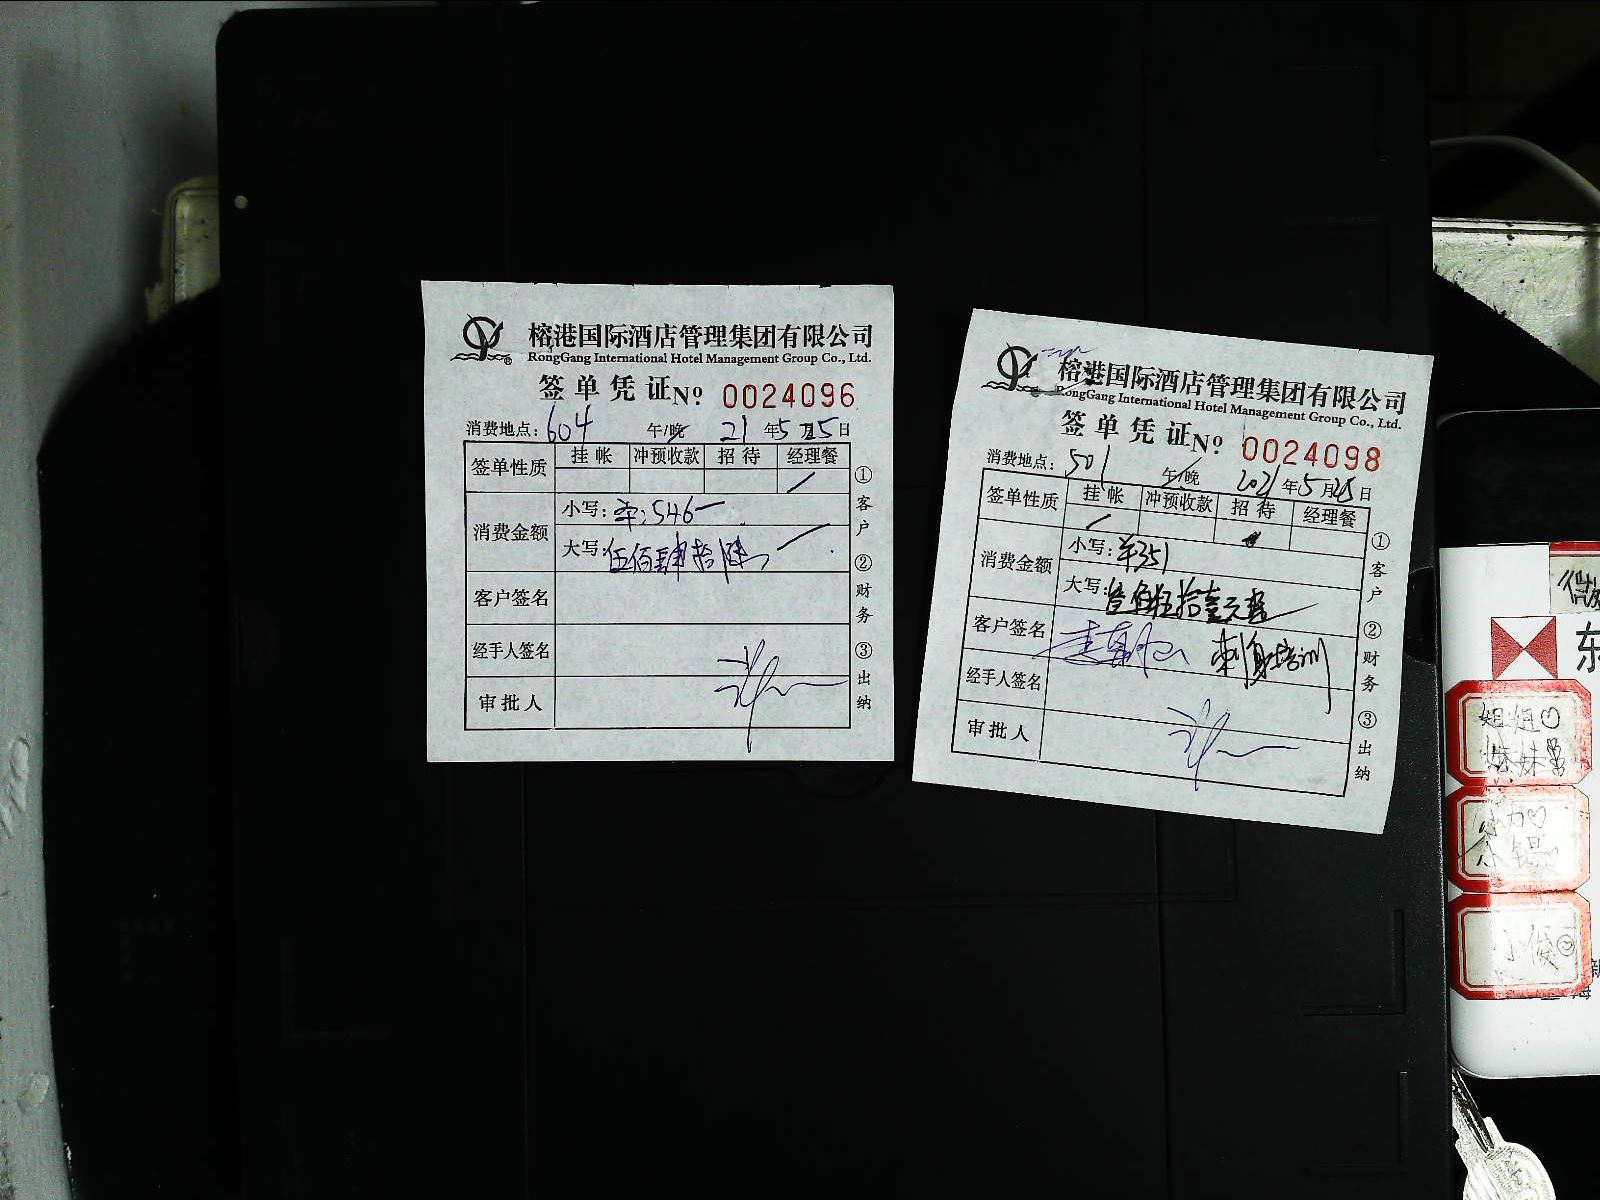 榕港国际酒店管理集团有限公司
RongGang International Hotel Management Group Co., Ltd.
签单凭证№ 0024096
消费地点：604 午/晚 21年5月25日
签单性质 挂帐 冲预收款 招待 经理餐
消费金额 小写：¥：546
大写：伍佰肆拾陆
客户签名
经手人签名
审批人
①客户 ②财务 ③出纳
榕港国际酒店管理集团有限公司
RongGang International Hotel Management Group Co., Ltd.
签单凭证№ 0024098
消费地点：501 午/晚 2021年5月25日
签单性质 挂帐 冲预收款 招待 经理餐
消费金额 小写：¥351
大写：叁佰伍拾壹元整
客户签名 刺身培训
经手人签名
审批人
①客户 ②财务 ③出纳
东
姐姐
妹妹
小俊